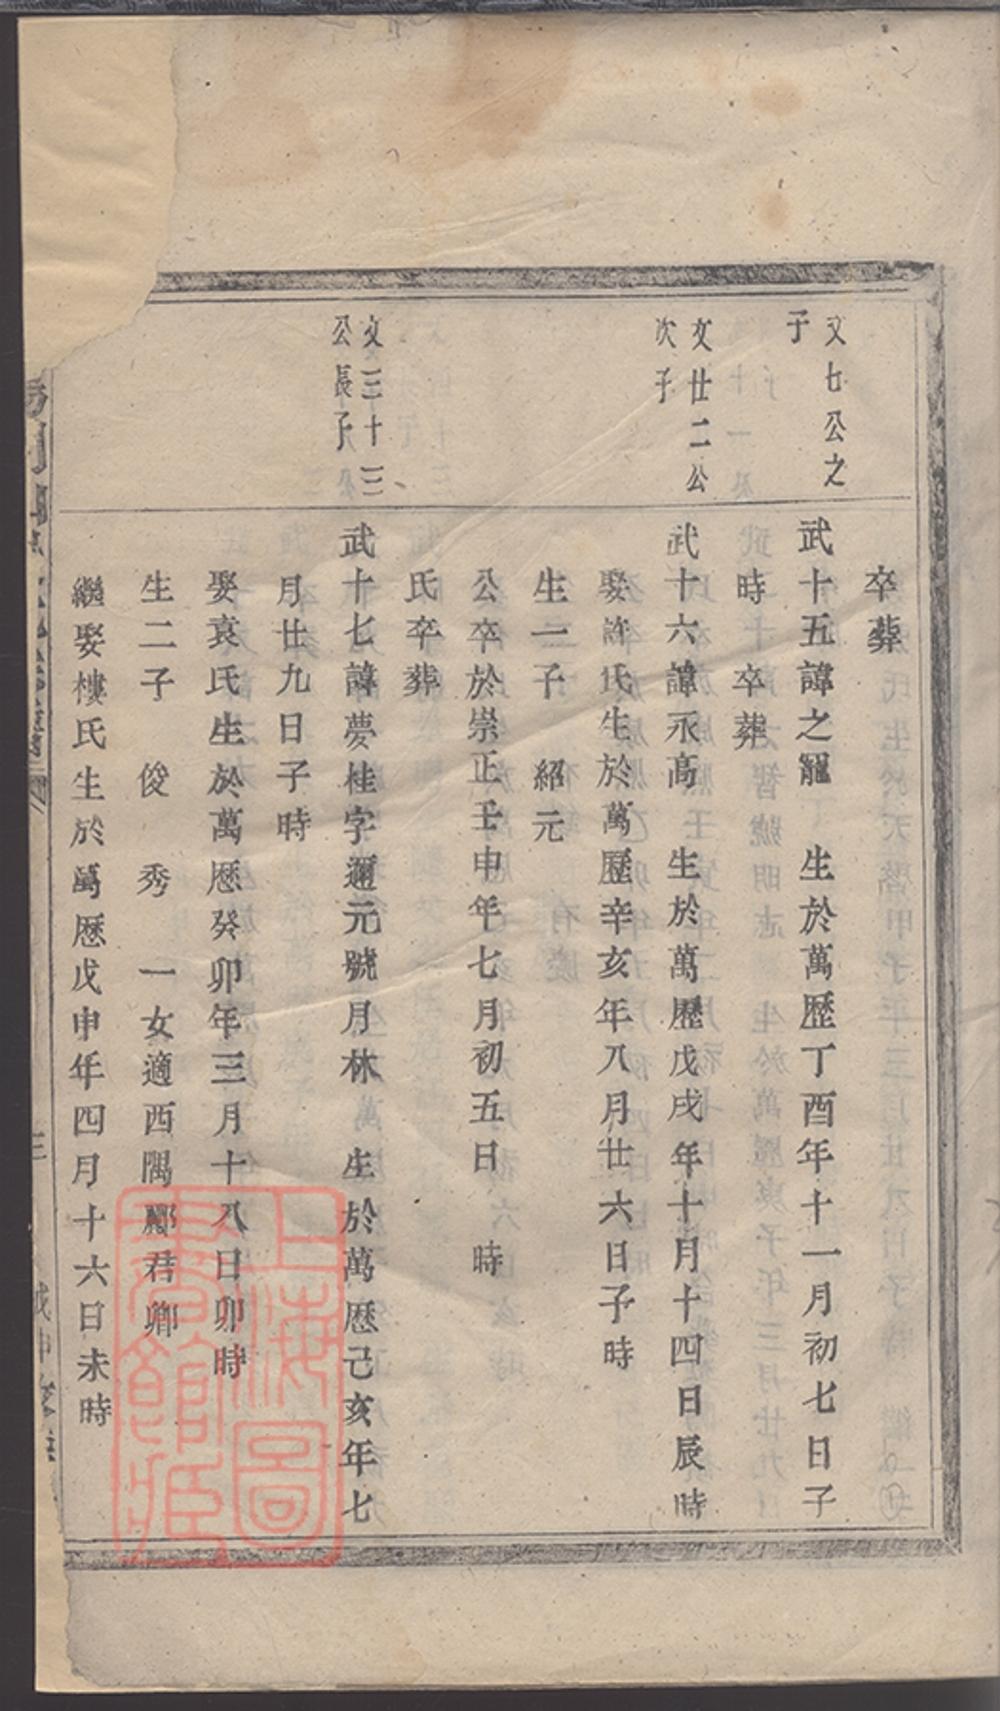 卒葬
文七公之
子
武十五諱之寵　生於萬歷丁酉年十一月初七日子
時　卒葬
文廿二公
次子
武十六諱永高　生於萬歷戊戌年十月十四日辰時
娶許氏生於萬歷辛亥年八月廿六日子時
生一子　紹元
公卒於崇正壬申年七月初五日　時
氏卒葬
文三十三
公長子
武十七諱夢桂字邇元號月林　生於萬歷己亥年七
月廿九日子時
娶袁氏生於萬歷癸卯年三月十八日卯時
生二子　俊　秀　一女適西隅酈君卿
繼娶樓氏生於萬歷戊申年四月十六日未時
上海圖
書館藏